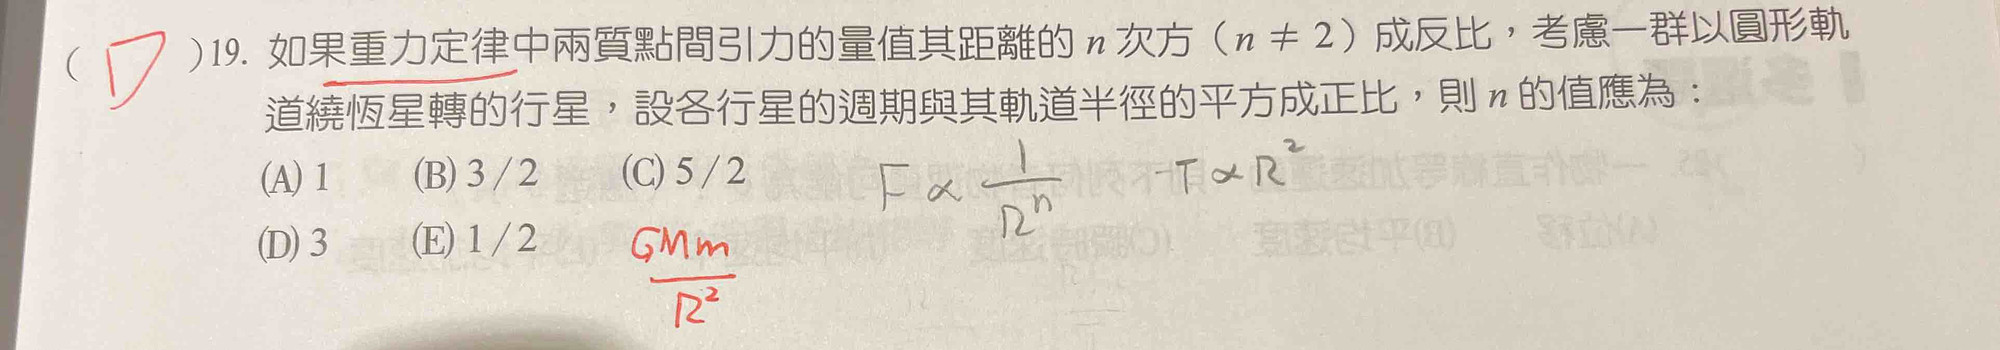 ( D )19. 如果重力定律中兩質點間引力的量值其距離的 n 次方（n ≠ 2）成反比，考慮一群以圓形軌
道繞恆星轉的行星，設各行星的週期與其軌道半徑的平方成正比，則 n 的值應為：
(A) 1 (B) 3 / 2 (C) 5 / 2 F ∝ 1/R^n T ∝ R²
(D) 3 (E) 1 / 2 GMm/R²